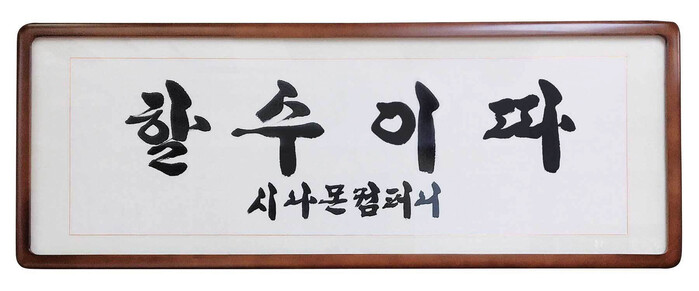 할 수 이 따
시나몬컴퍼니